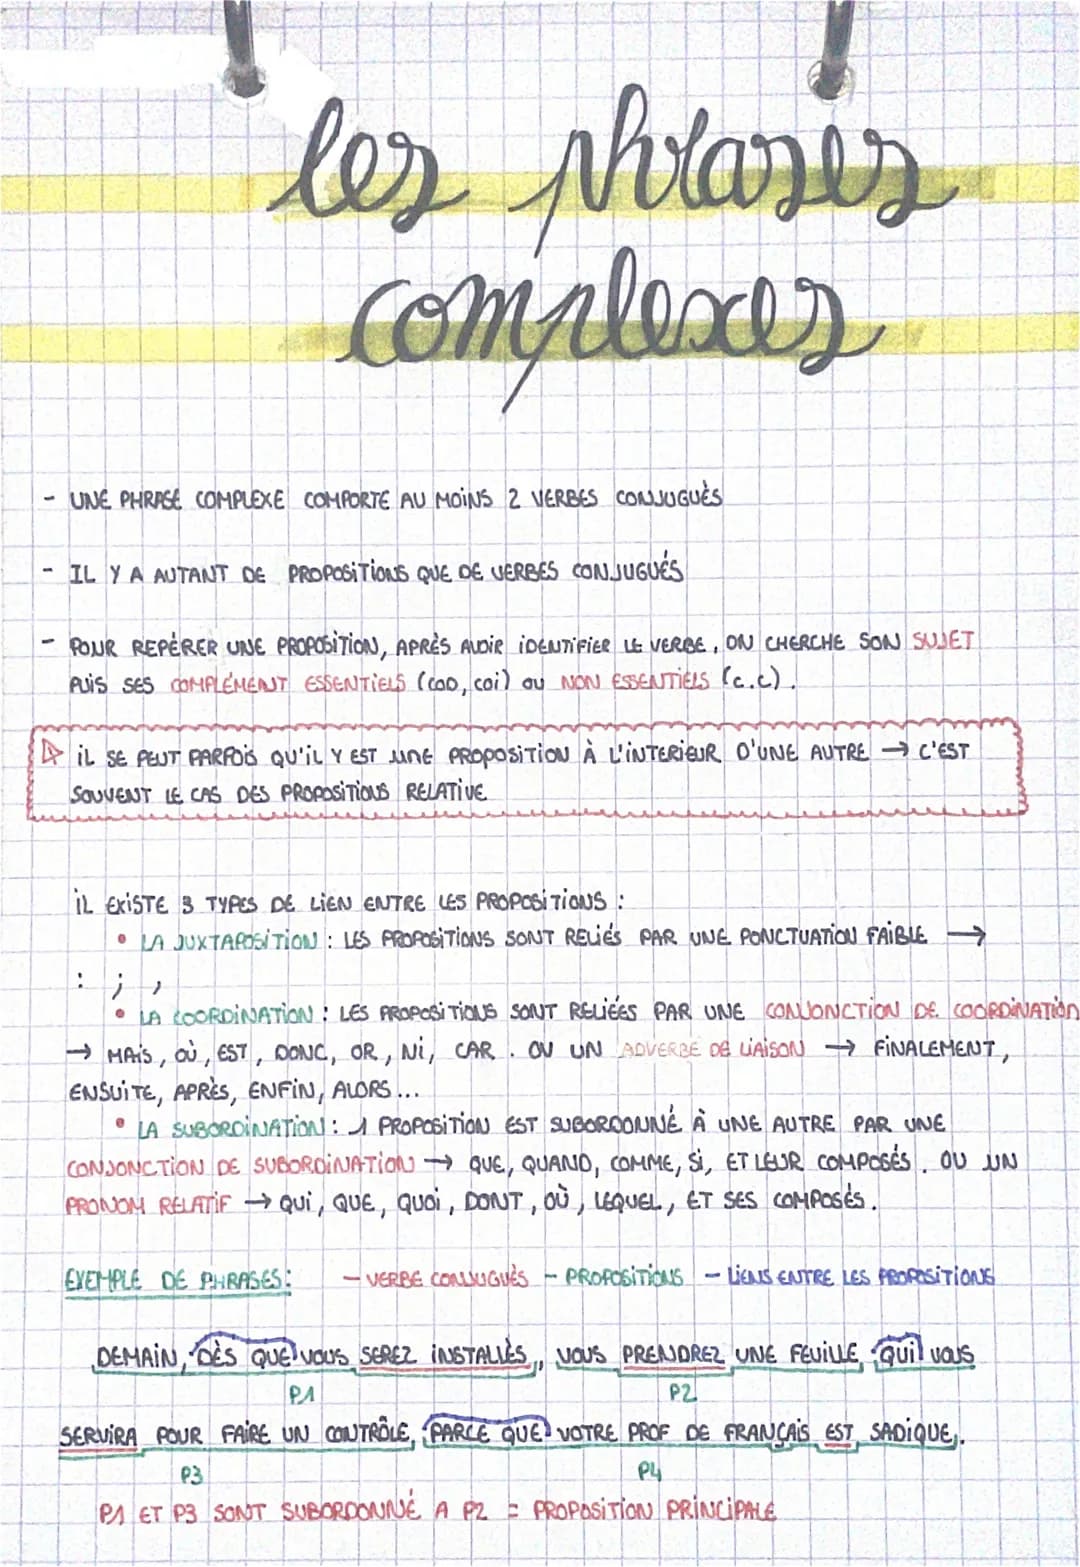 les phrases
complexes
- UNE PHRASE COMPLEXE COMPORTE AU MOINS 2 VERBES CONJUGUÈS
- IL Y A AUTANT DE PROPOSITIONS QUE DE VERBES CONJUGUÉS
- POUR REPÉRER UNE PROPOSITION, APRÈS AVOIR IDENTIFIER LE VERBE, ON CHERCHE SON SUJET
PUIS SES COMPLÉMENT ESSENTIELS (COD, COI) OU NON ESSENTIELS (C.C).
IL SE PEUT PARFOIS QU'IL Y EST UNE PROPOSITION À L'INTERIEUR D'UNE AUTRE → C'EST
SOUVENT LE CAS DES PROPOSITIONS RELATIVE
IL EXISTE 3 TYPES DE LIEN ENTRE LES PROPOSITIONS :
• LA JUXTAPOSITION : LES PROPOSITIONS SONT RELIÉS PAR UNE PONCTUATION FAIBLE →
: ; ,
• LA COORDINATION : LES PROPOSITIONS SONT RELIÉES PAR UNE CONJONCTION DE COORDINATION
→ MAIS, OÙ, EST, DONC, OR, NI, CAR. OU UN ADVERBE DE LIAISON → FINALEMENT,
ENSUITE, APRÈS, ENFIN, ALORS...
• LA SUBORDINATION : 1 PROPOSITION EST SUBORDONNÉ À UNE AUTRE PAR UNE
CONJONCTION DE SUBORDINATION → QUE, QUAND, COMME, SI, ET LEUR COMPOSÉS. OU UN
PRONOM RELATIF → QUI, QUE, QUOI, DONT, OÙ, LEQUEL, ET SES COMPOSÉS.
EXEMPLE DE PHRASES : - VERBE CONJUGUÈS - PROPOSITIONS - LIENS ENTRE LES PROPOSITIONS
DEMAIN, DÈS QUE VOUS SEREZ INSTALLÈS, VOUS PRENDREZ UNE FEUILLE QUI VOUS
P1 P2
SERVIRA POUR FAIRE UN CONTRÔLE, PARCE QUE VOTRE PROF DE FRANÇAIS EST SADIQUE.
P3 P4
P1 ET P3 SONT SUBORDONNÉ A P2 = PROPOSITION PRINCIPALE